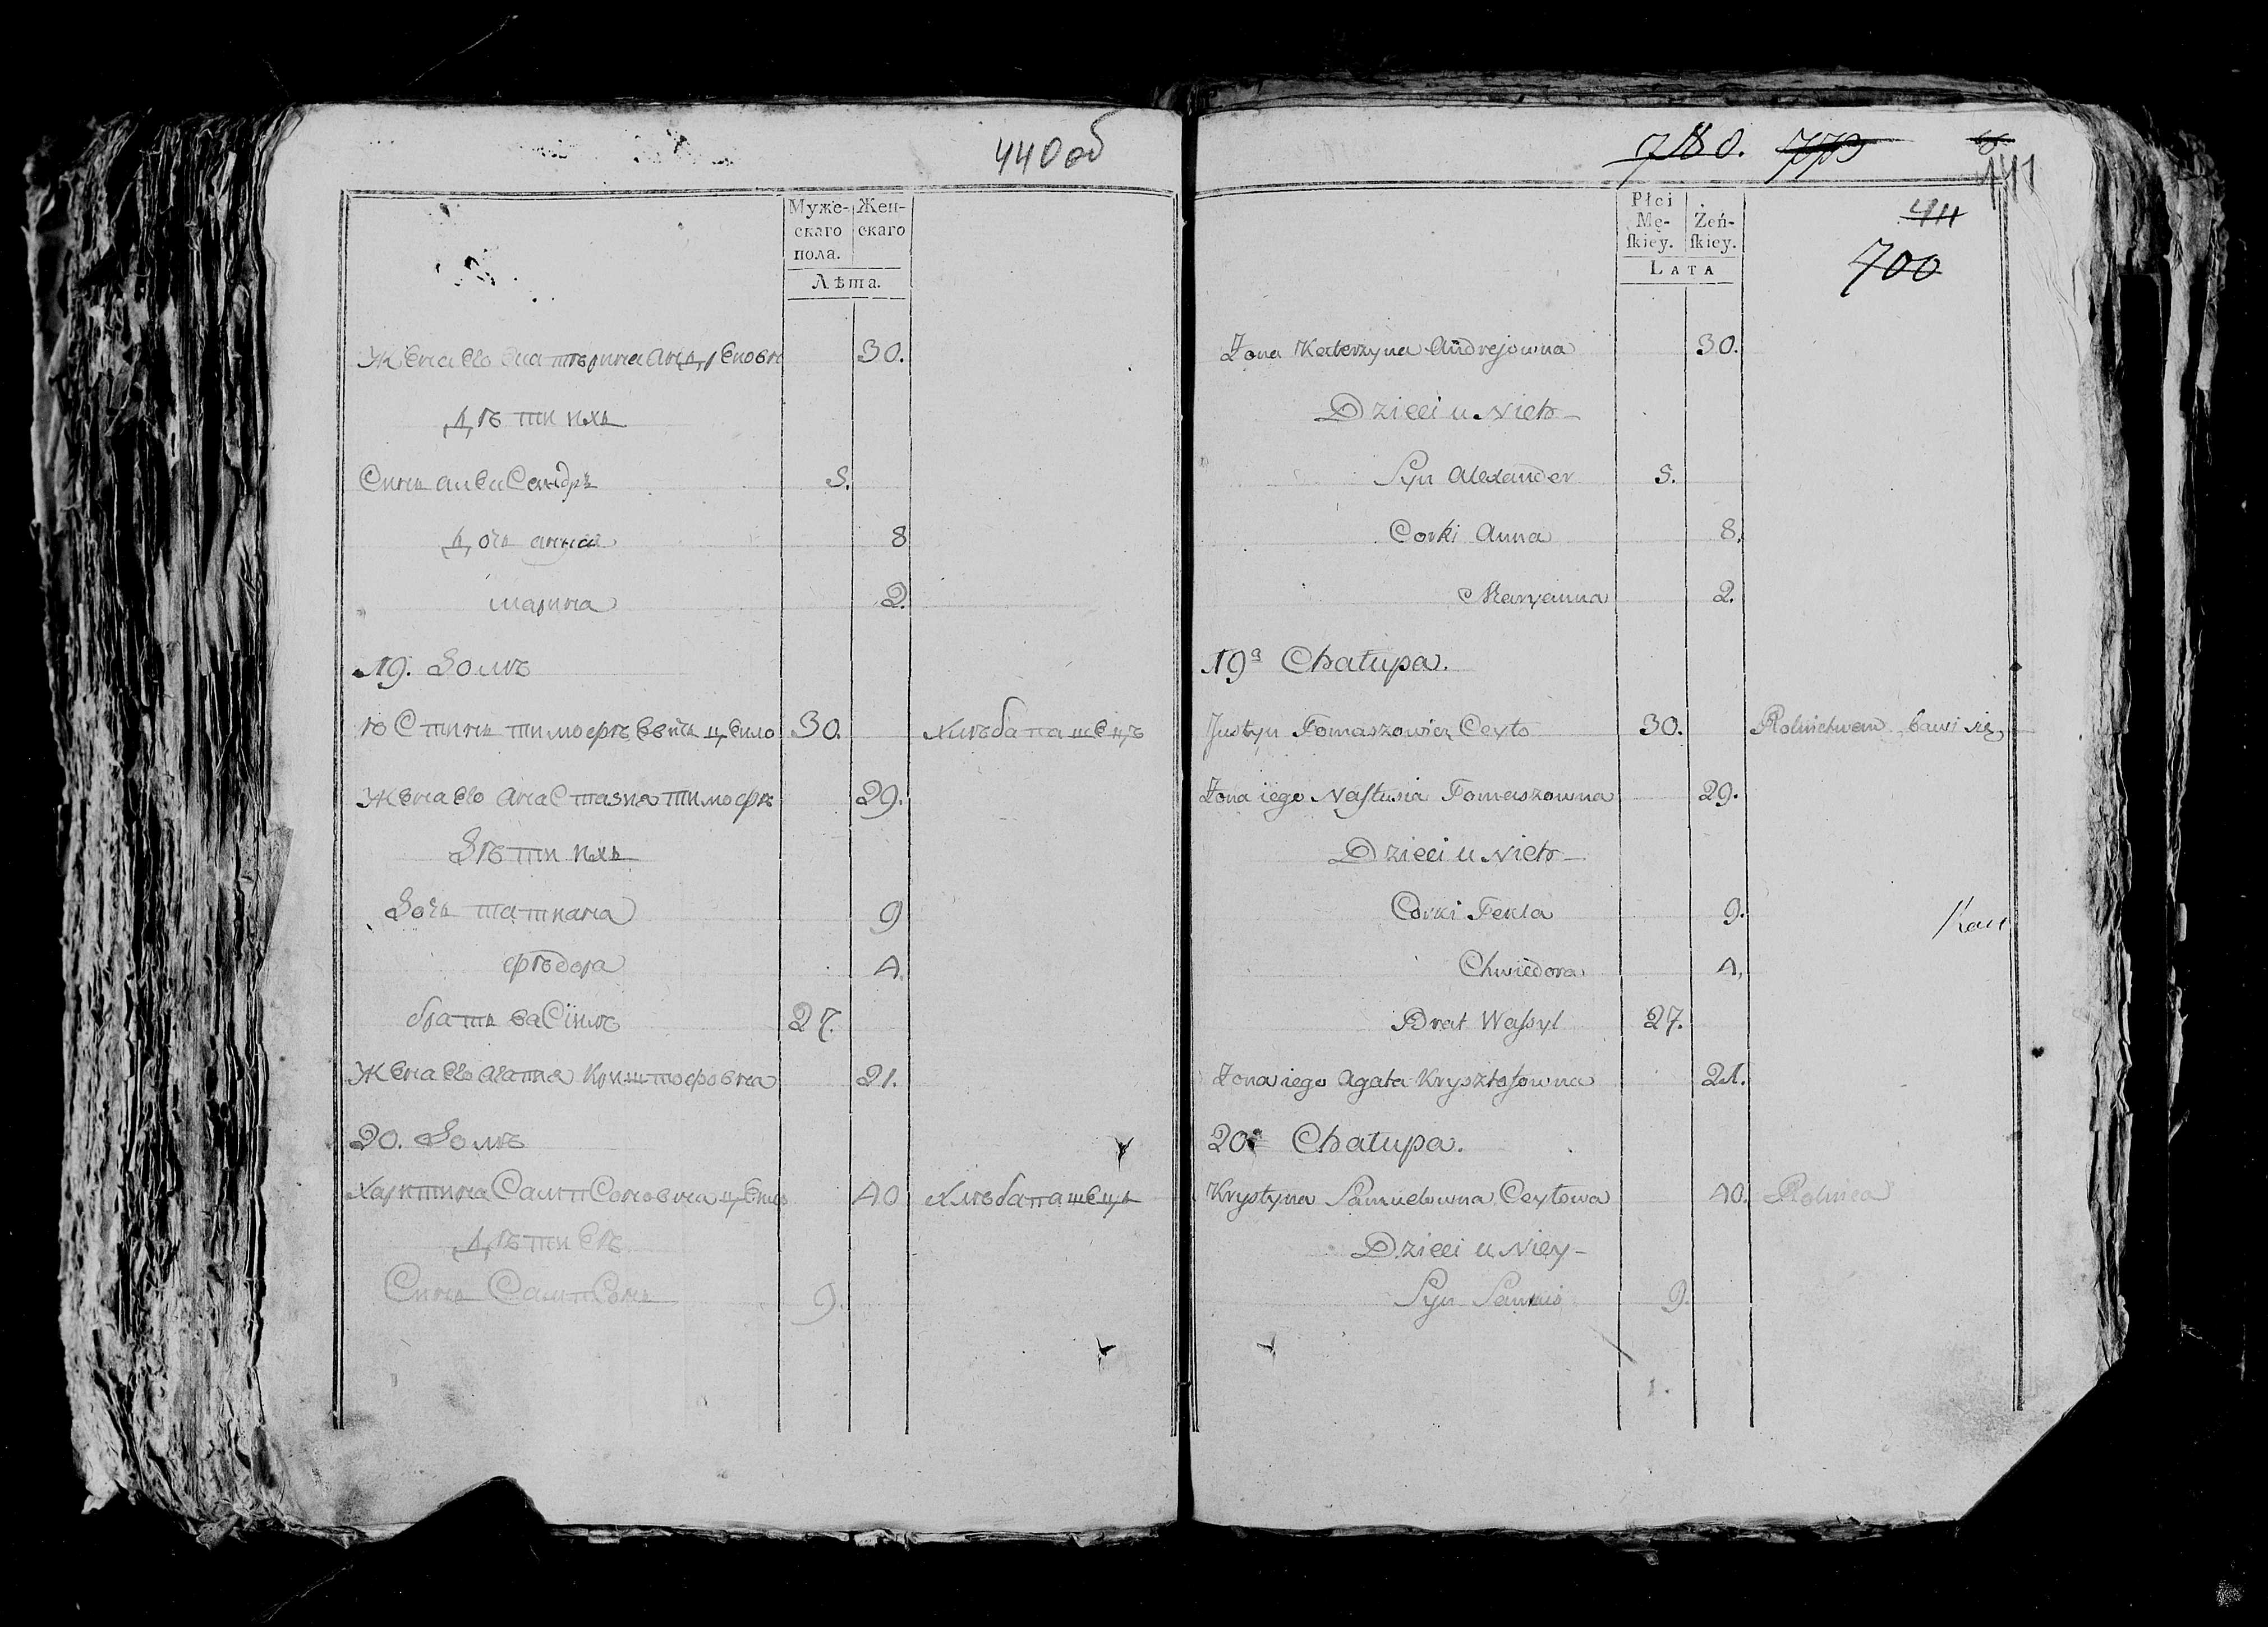 440 об
Муже-
скаго
пола.
Жен-
скаго
Лѣта.
Жена его Катерина Андреновн 30.
Дѣти ихъ
Синъ александръ 5.
Дочь анна 8
марина 2.
19. Домъ
юстинъ тимофѣевичъ цейло 30. хлѣбапашецъ
Жена его анастазия тимофѣ 29.
Дѣти ихъ
Дочь татиана 9
фѣдора 4.
братъ василъ 27.
Жена его агапия криштофовна 21.
20. Домъ
Харитина Сампсоновна 40 хлѣбапашецъ
Дѣти еѣ
Синъ Сампсонъ 9.
780. 773
441
411
700
Płci
Mę-
ſkiey.
Żeń-
ſkiey.
LATA
Żona Katerzyna Andrejowna 30.
Dzieci u Nich
Syn Alexander 5.
Corki Anna 8.
Maryanna 2.
19a Chałupa.
Justyn Tomaszowicz Ceyto 30. Rolnictwem bawi się
Żona iego Naſtusia Tomaszowna 29.
Dzieci u Nich
Corki Tekla 9.
Kau
Chwiedora 4.
Brat Waſsyl 27.
Żona iego Agata Krysztofowna 21.
20a Chałupa.
Krystyna Samuelowna Ceytowa 40. Rolnica
Dzieci u Niey
Syn 9
1.